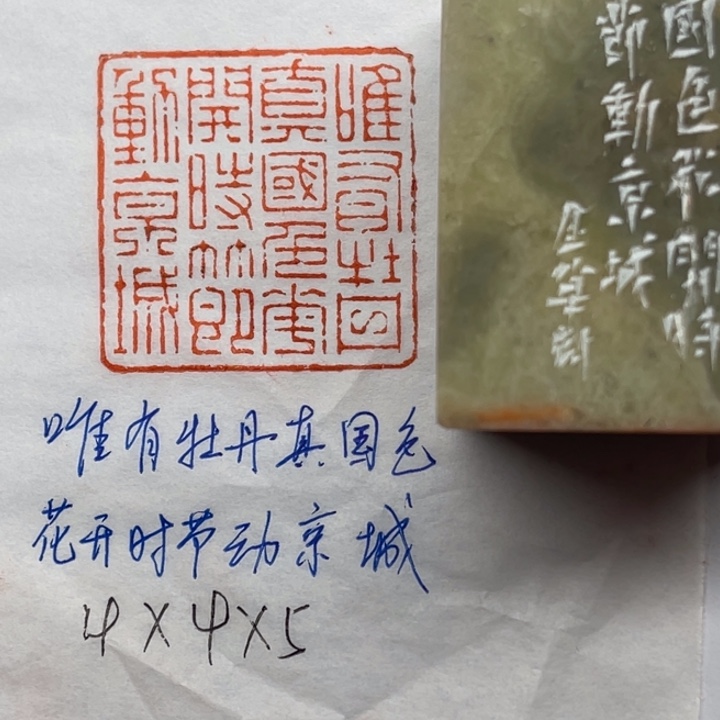 唯有牡丹
真國色華
開時節
動京城
國色花開時
節動京城
唯有牡丹真国色
花开时节动京城
4×4×5